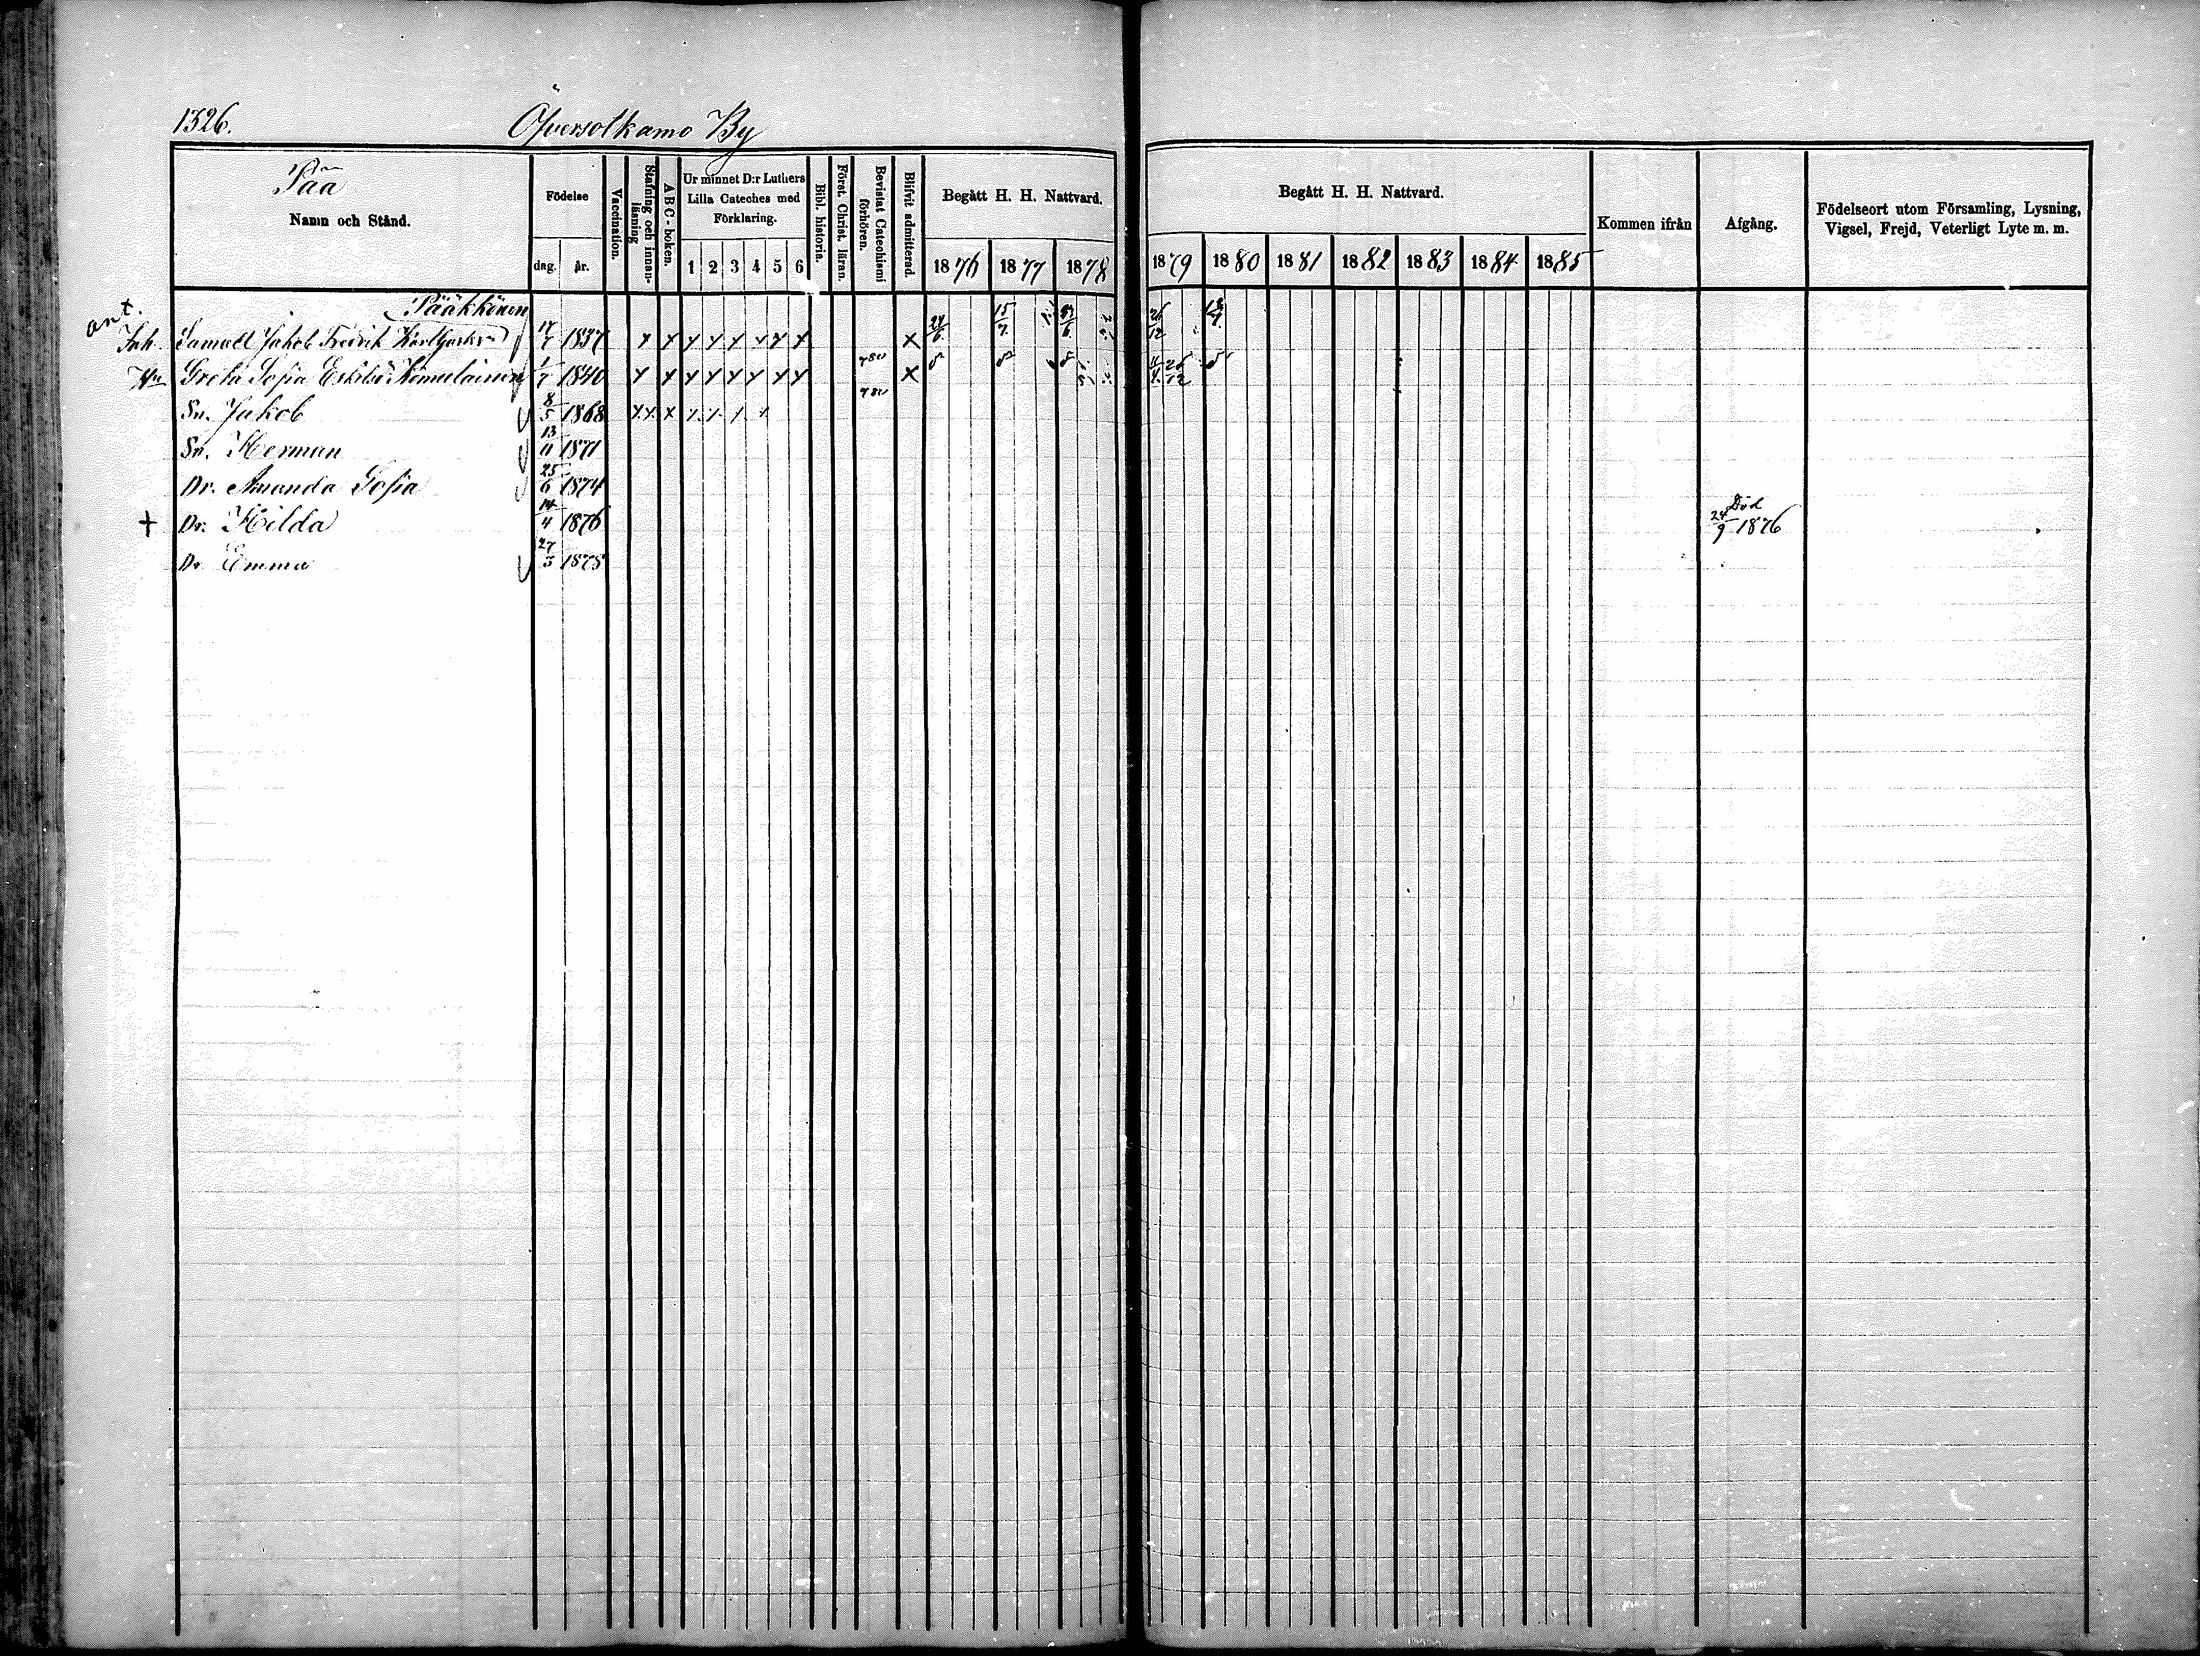 1326.
Öfversotkamo By
Pää
Namn och Stånd.
Födelse
dag. år.
Vaccination.
Stafning och innanläsning
ABC-boken.
Ur minnet D:r Luthers
Lilla Cateches med
Förklaring.
1 2 3 4 5 6
Bibl. historia.
Först. Christ. läran.
Bevistat Catechismi förhören.
Blifvit admitterad.
Begått H. H. Nattvard.
1876 1877 1878
Begått H. H. Nattvard.
1879 1880 1881 1882 1883 1884 1885
Kommen ifrån
Afgång.
Födelseort utom Församling, Lysning,
Vigsel, Frejd, Veterligt Lyte m. m.
ant.
Pääkkönen
Inh. Samuel Jakob Fredrik 17/7 1837 x x x x x x x x x 24/6 15/7 26/12
Hu Greta Sofia Eskilsd. Kemäläinen 1/7 1840 x x x x x x x x x
Sn. Jakob 8/5 1868
Sn. Herman 13/11 1871
Dr. Amanda Sofia 25/6 1874
+ Dr. Hilda 14/4 1876 Död 24/9 1876
Dr Emma 27/3 1878